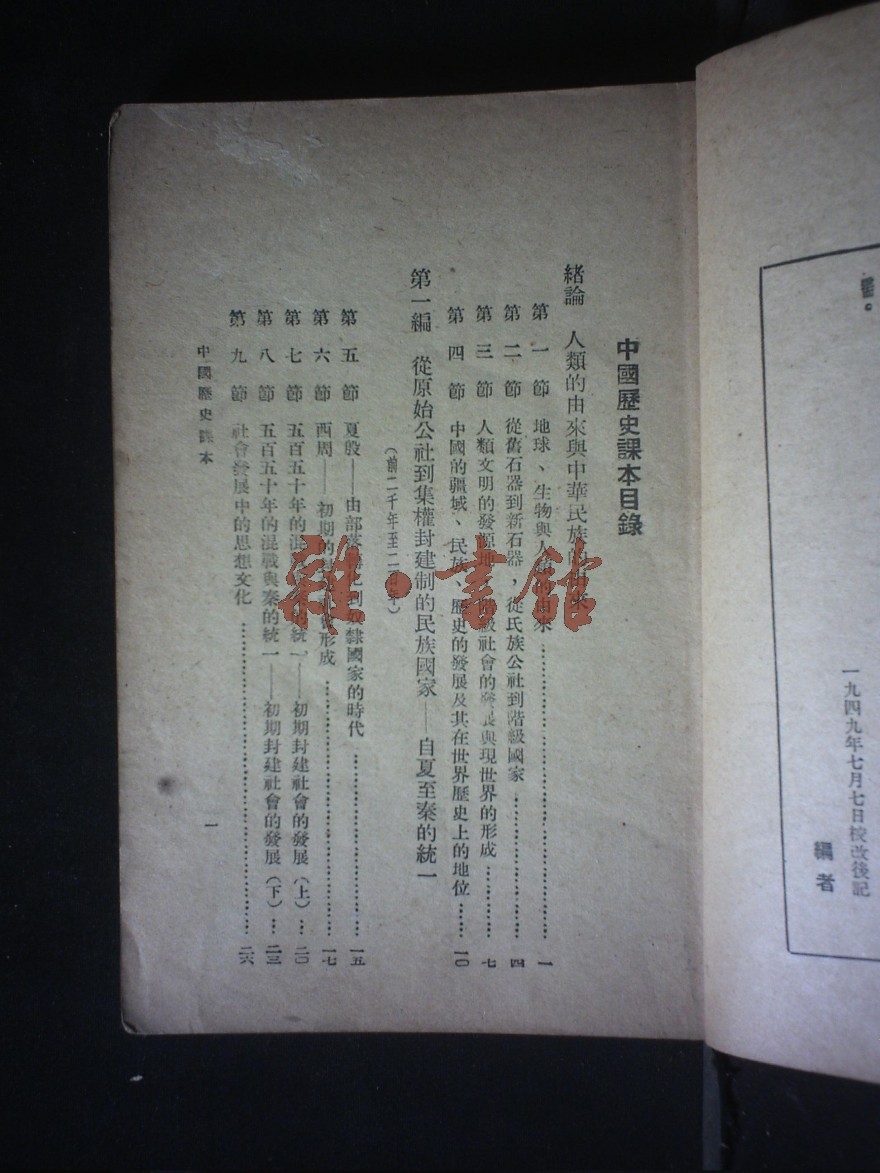 一九四九年七月七日校改後記
編者
中國歷史課本目錄
緒論 人類的由來與中華民族的由來
第一節 地球、生物與人類的由來 一
第二節 從舊石器到新石器，從氏族公社到階級國家 四
第三節 人類文明的發源地、階級社會的發展與現世界的形成 七
第四節 中國的疆域、民族、歷史的發展及其在世界歷史上的地位 一〇
第一編 從原始公社到集權封建制的民族國家——自夏至秦的統一
（前二千年至二百年）
第五節 夏殷——由部落 到奴隸國家的時代 一五
第六節 西周——初期的封建社會形成 一七
第七節 五百五十年的混戰與秦的統一——初期封建社會的發展（上） 二〇
第八節 五百五十年的混戰與秦的統一——初期封建社會的發展（下） 二三
第九節 社會發展中的思想文化 二六
中國歷史課本
一
雜·書館